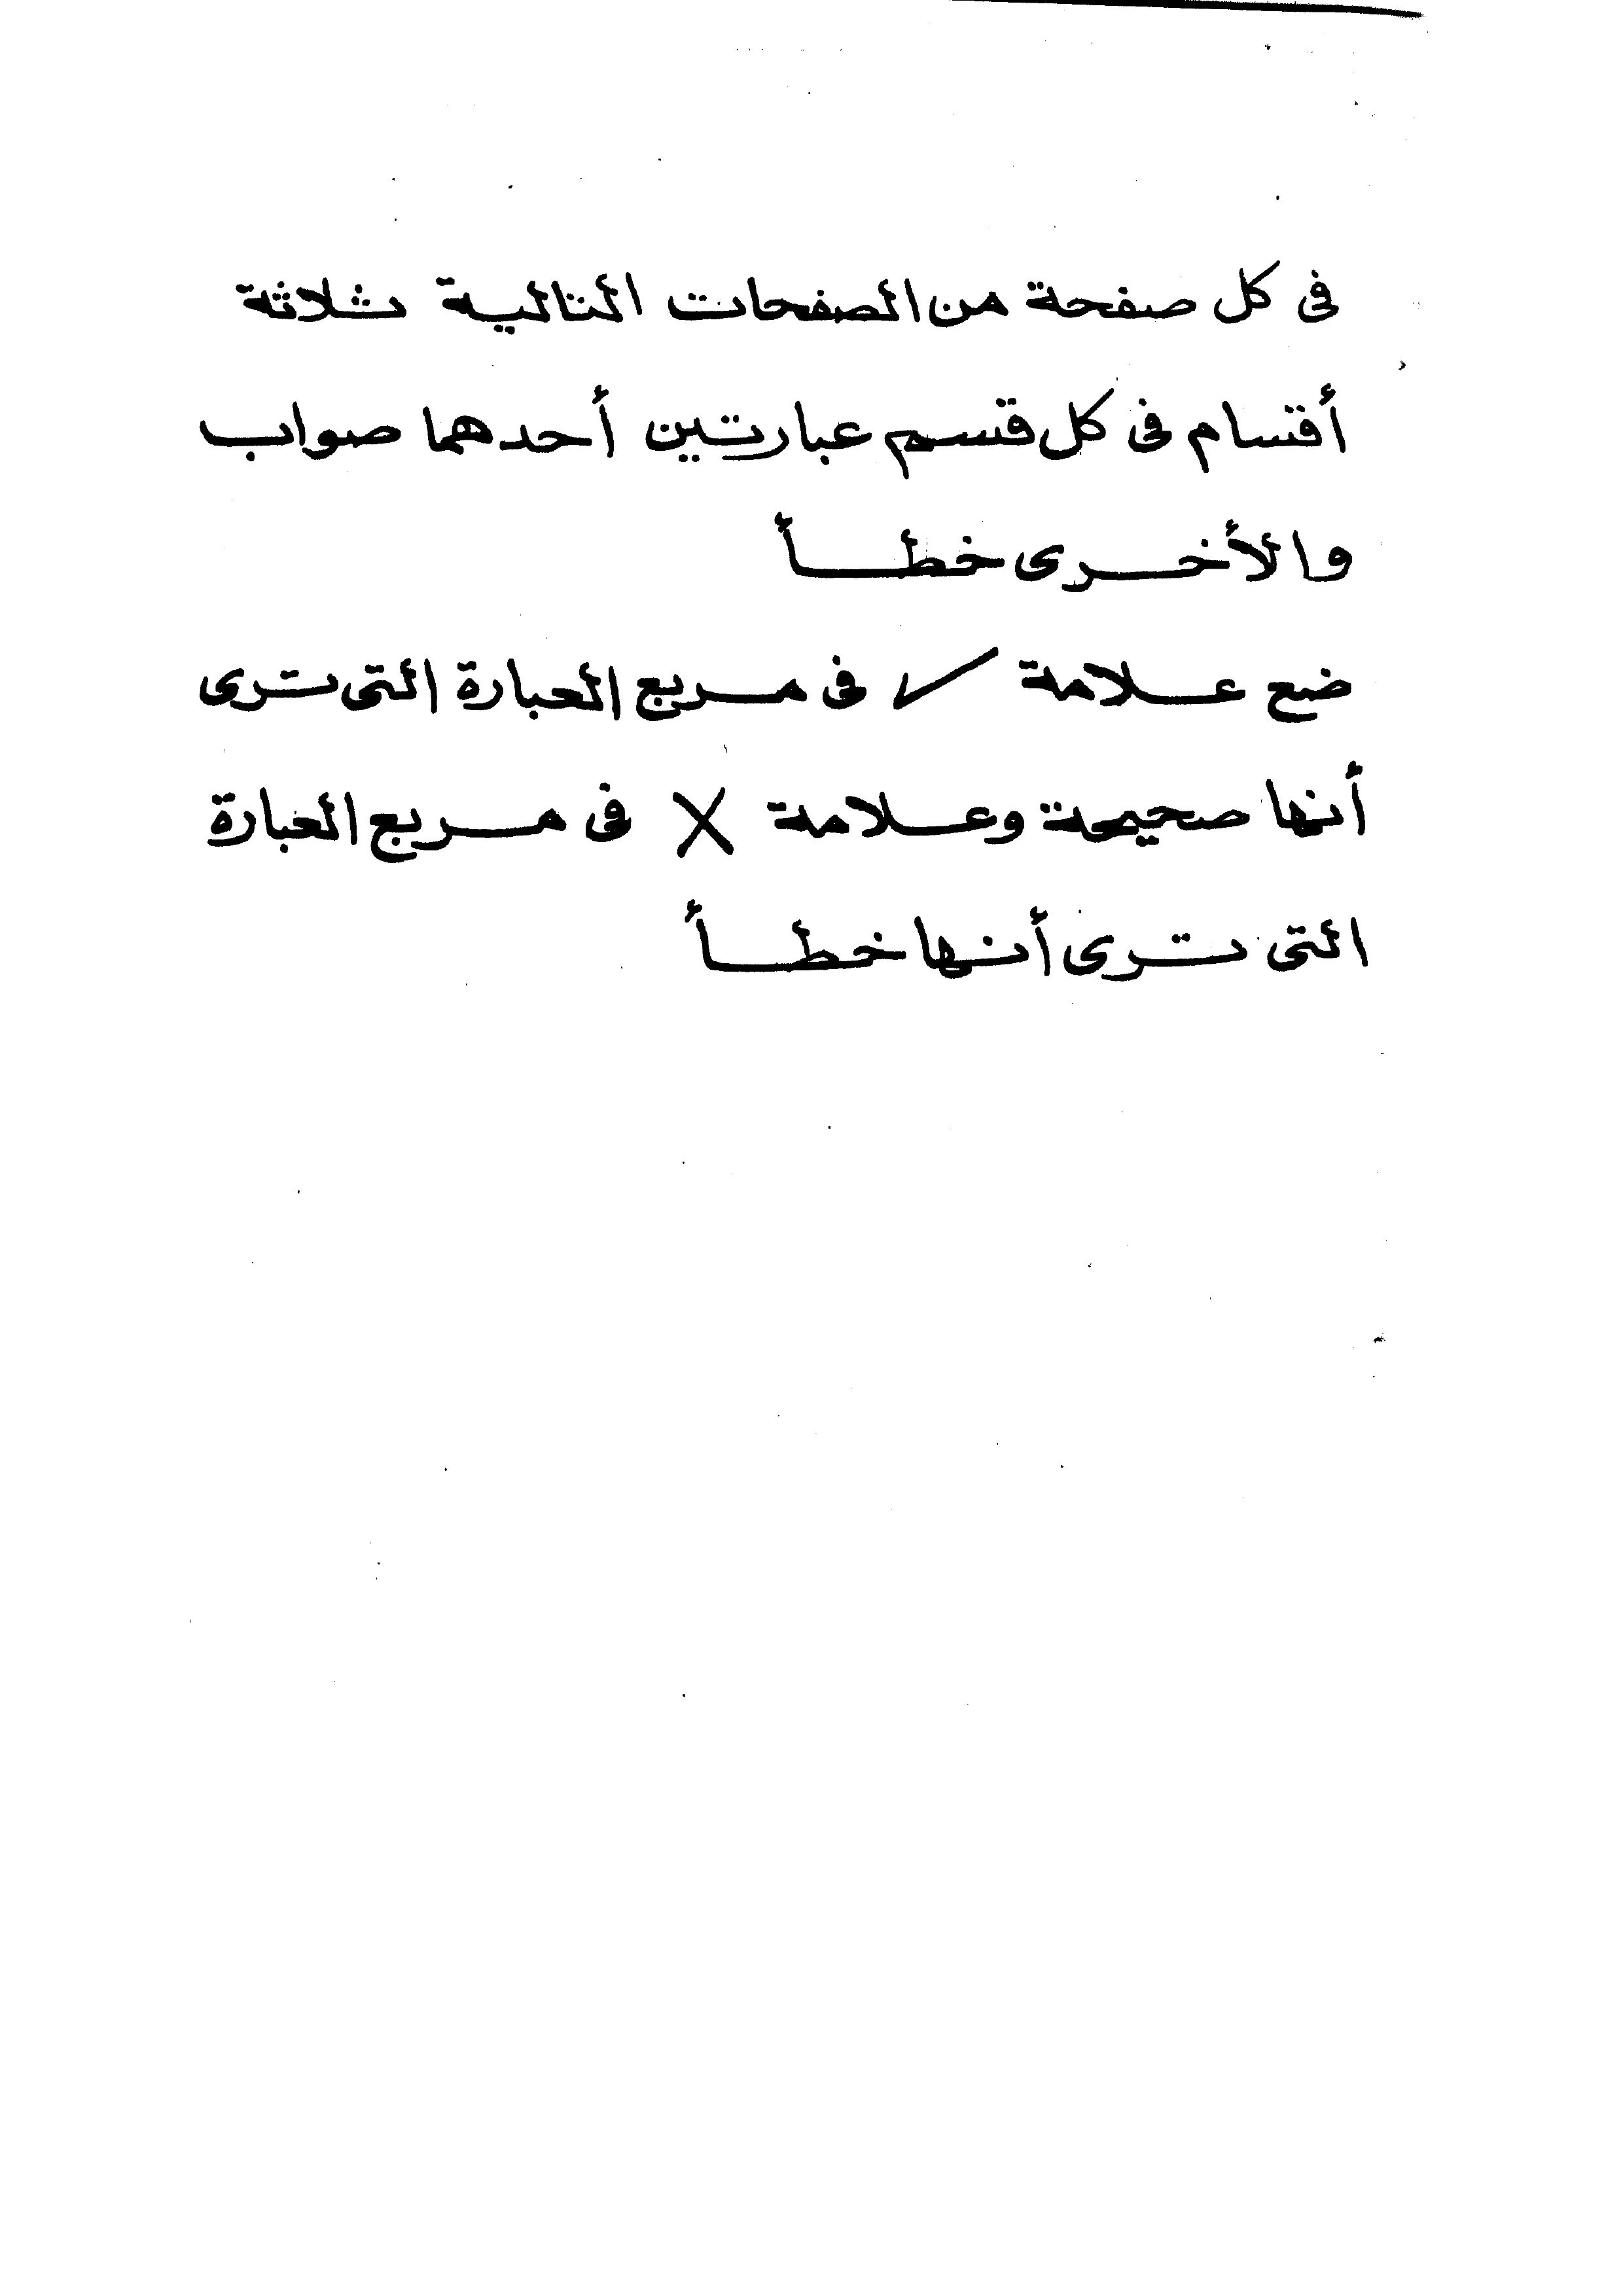 فى كل صفحة من الصفحات التالية ثلاثة
أقسام فى كل قسم عبارتين أحدهما صواب
والأخرى خطأ
ضع علامة ✓ فى مربع العبارة التى ترى
أنها صحيحة وعلامة X فى مربع العبارة
التى ترى أنها خطأ